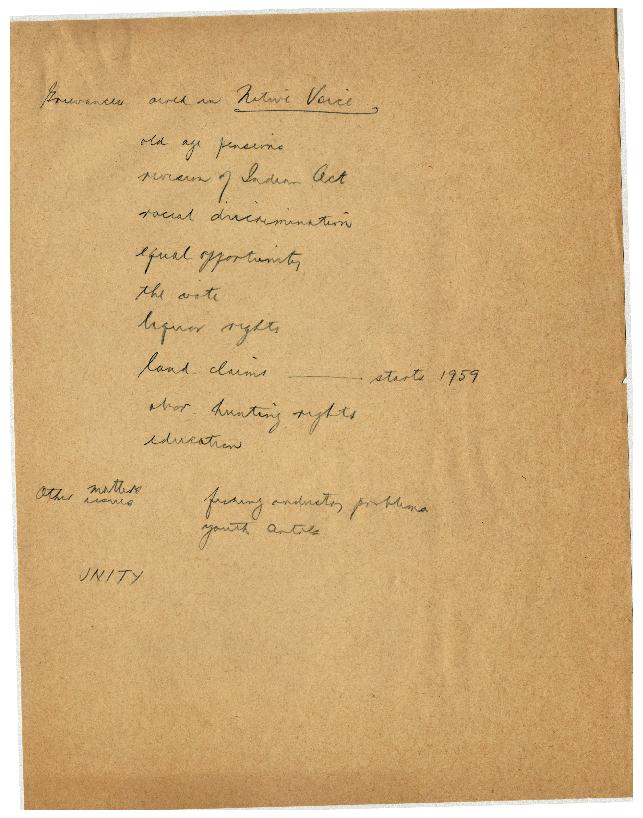 Grievances aired in Native Voice
old age pensions
revision of Indian Act
racial discrimination
equal opportunity
the vote
liquor rights
land claims —— starts 1959
abor. hunting rights
education
Other matters
issues
fishing industry problems
youth
UNITY